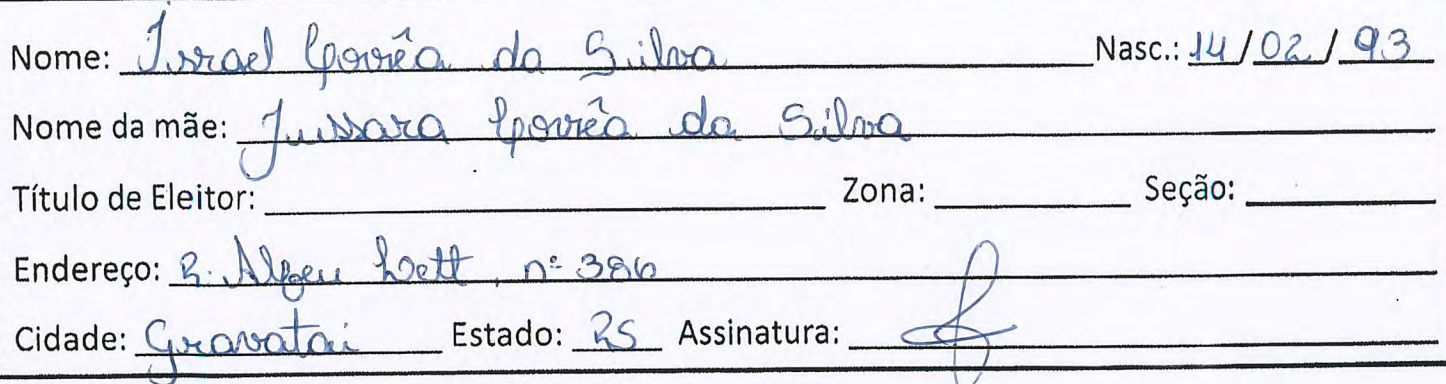 Nome: Israel Corrêa da Silva Nasc.: 14/02/93
Nome da mãe: Jussara Corrêa da Silva
Título de Eleitor: Zona: Seção:
Endereço: R. Alfeu nº 386
Cidade: Gravatai Estado: RS Assinatura: